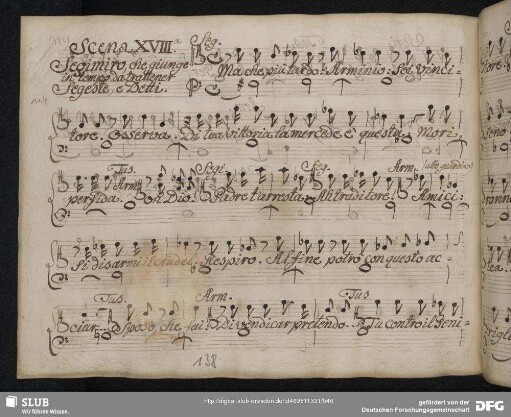 Scena XVIII. Seg.
Segimiro che giunge
in tempo da trattener
Segeste, e Detti.
Ma che più tardo? Arminio: Sei vinci-
tore. Osserva. Di tua vittoria la mercede è questa. Mori
Tus. Segi. Seg. Arm.
perfida. Arm. Oh Dio. Padre t'arresta. Ah traditore! Amici:
Si disarmi il crudel. Respiro. Al fine potrò con questo ac-
Tus. Arm. Tus
ciar... Sposo, che fai? Di vendicar pretendo... Tu contro il Geni-
138
SLUB
Wir führen Wissen.
http://digital.slub-dresden.de/id469511331/540
gefördert von der
Deutschen Forschungsgemeinschaft
DFG